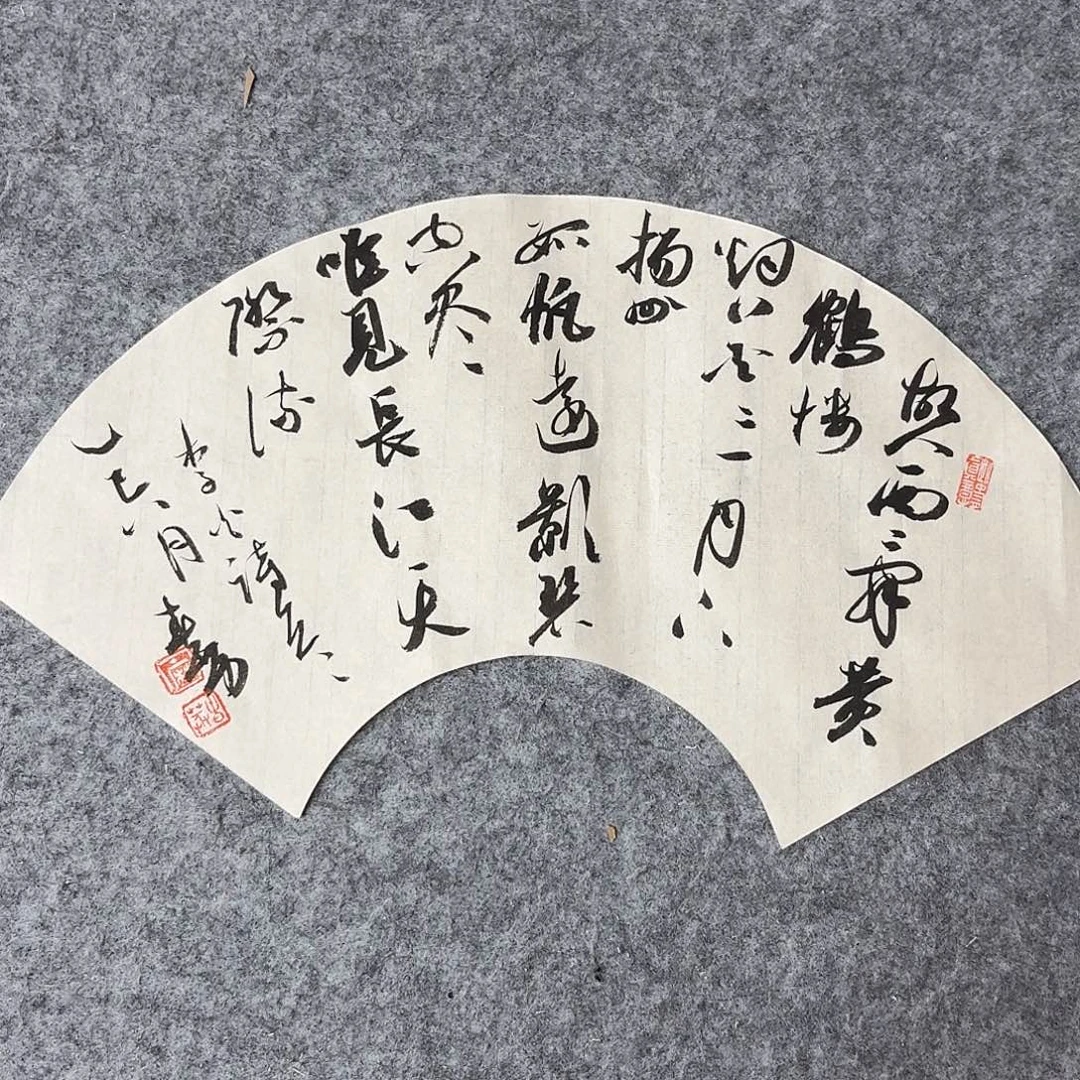 故人西辭黃
鶴樓
烟花三月下
揚州
孤帆遠影碧
空盡
唯見長江天
際流
李白詩
乙巳八月